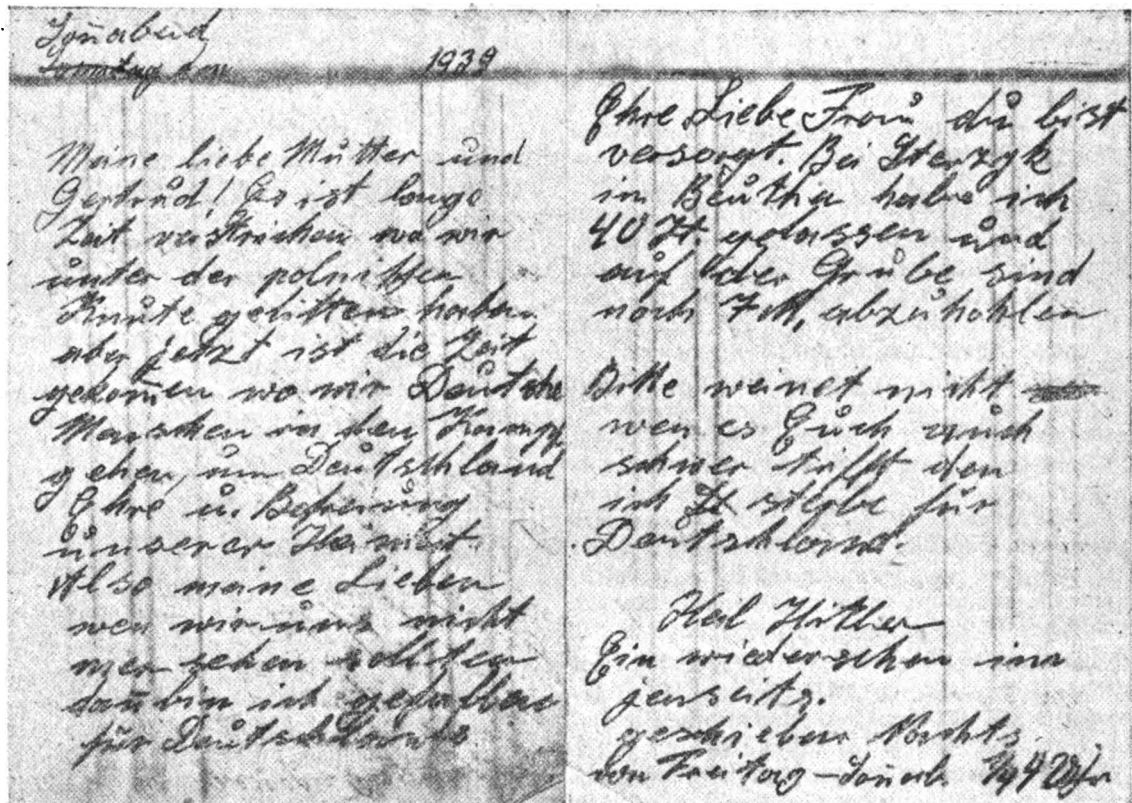 Soñabend
Sonntag den 1939
Meine liebe Mutter und
Gertrud! Es ist lange
Zeit verstrichen wo wir
unter der polnischen
Knute gelitten haben
aber jetzt ist die Zeit
gekom̄en wo wir Deutsche
Menschen in den Kampf
gehen, um Deutschland
Ehre u. Befreiung
unserer Heimat.
Also meine Lieben
wen wir uns nicht
mer sehen sollten
dan̄ bin ich gefallen
für Deutschlands
Ehre Liebe Frau du bist
versorgt. Bei
in Beuthen habe ich
40 Zł. gelassen und
auf der Grube sind
noch abzuhohlen
Bitte weinet nicht
wen es Euch auch
schwer trifft den
ich sterbe für
Deutschland.
Heil Hitler
Ein wiedersehen im
jenseits.
geschieben Nachts
von Freitag – Soñab. Uhr